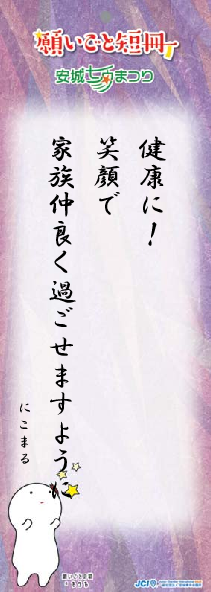 願いごと短冊
安城七夕まつり
健康に！
笑顔で
家族仲良く過ごせますように
にこまる
JCI